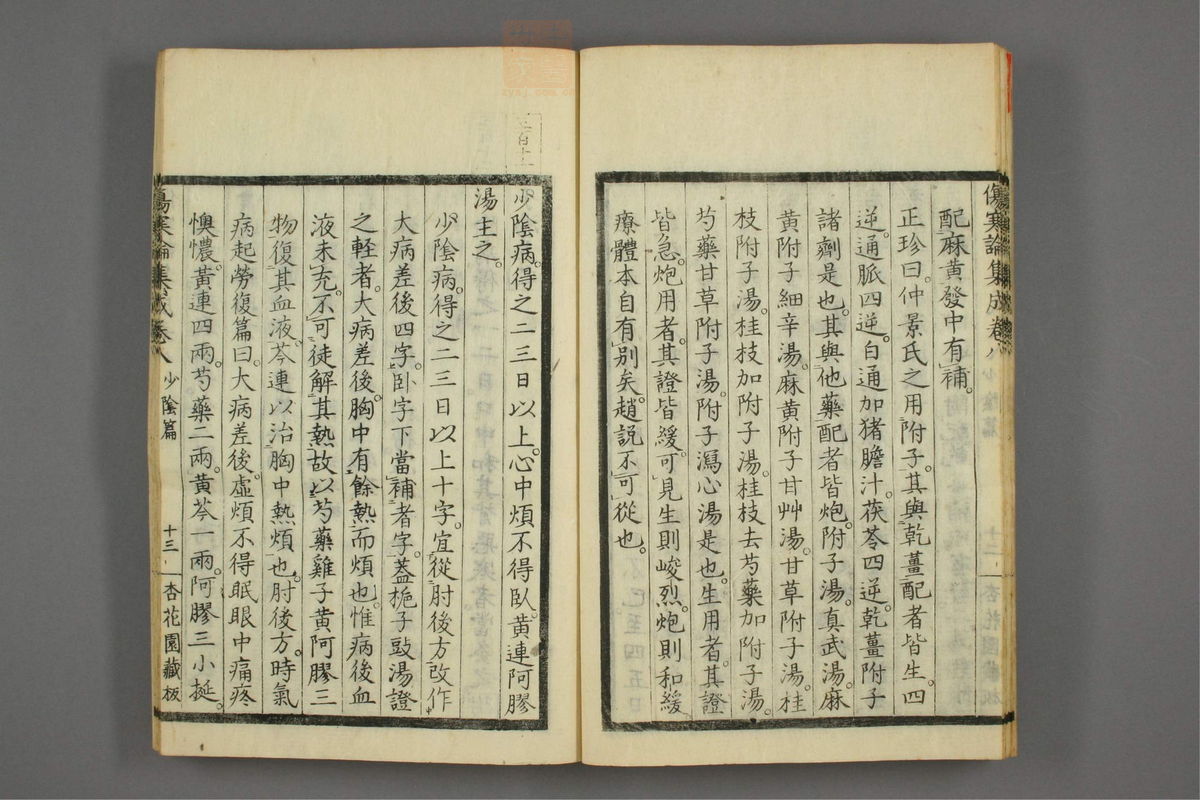 傷寒論集成卷八
配麻黃發中有補。
正珍曰。仲景氏之用附子。其與乾薑配者皆生。四
逆。通脈四逆。白通加猪膽汁。茯苓四逆。乾薑附子
諸劑是也。其與他藥配者皆炮。附子湯。真武湯。麻
黃附子細辛湯。麻黃附子甘艸湯。甘草附子湯。桂
枝附子湯。桂枝加附子湯。桂枝去芍藥加附子湯。
芍藥甘草附子湯。附子瀉心湯是也。生用者。其證
皆急。炮用者。其證皆緩。可見生則峻烈。炮則和緩
療體本自有別矣。趙説不可從也。
少陰病。得之二三日以上。心中煩不得臥。黃連阿膠
湯主之。
少陰病。得之二三日以上十字。宜從肘後方改作
大病差後四字。臥字下當補者字。蓋梔子豉湯證
之輕者。大病差後。胸中有餘熱而煩也。惟病後血
液未充。不可徒解其熱。故以芍藥雞子黃阿膠三
物復其血液。芩連以治胸中熱煩也。肘後方。時氣
病起勞復篇曰。大病差後。虛煩不得眠。眼中痛疼
懊憹。黃連四兩。芍藥二兩。黃芩一兩。阿膠三小挺。
傷寒論集成卷八 少陰篇 十三 杏花園藏板